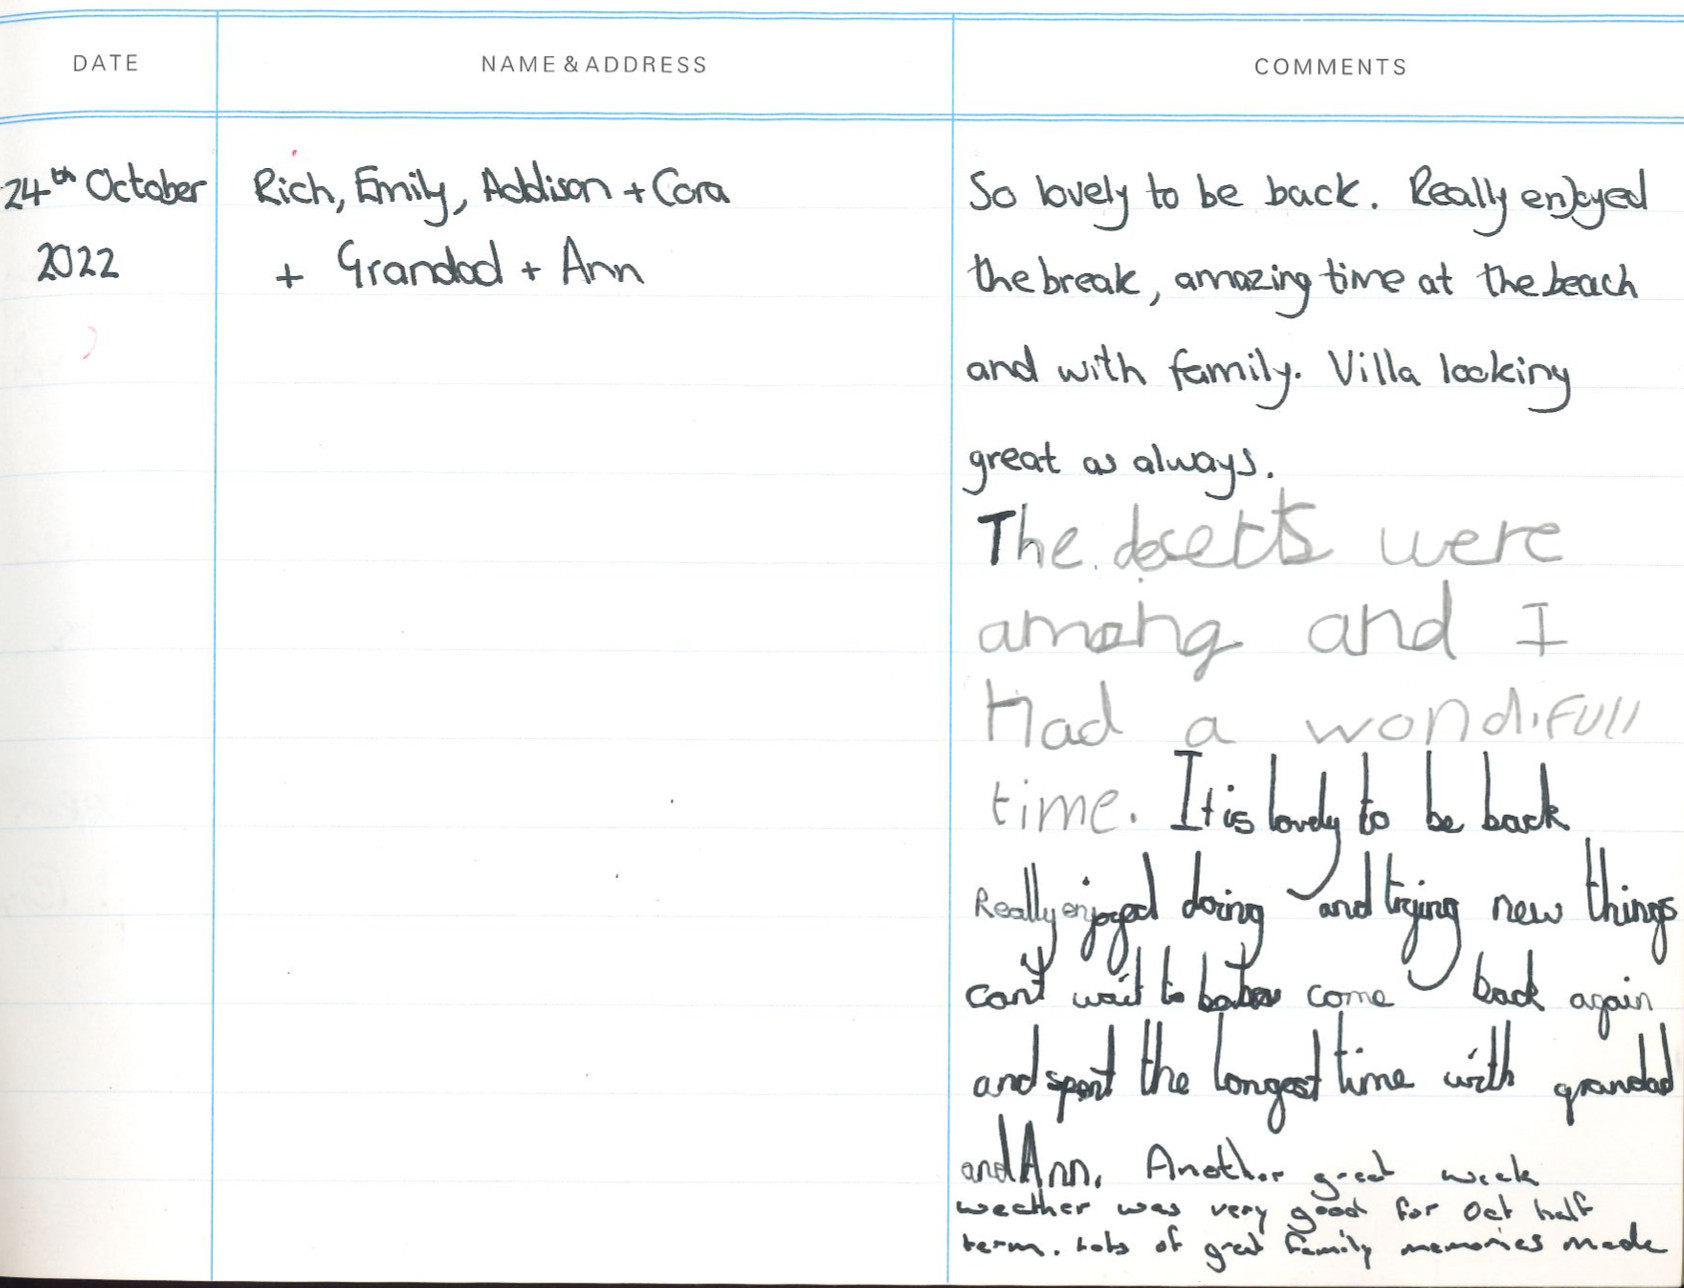 DATE
NAME & ADDRESS
COMMENTS
24th October
2022
Rich, Emily, Addison + Cora
+ Grandad + Ann
So lovely to be back. Really enjoyed
the break, amazing time at the beach
and with family. Villa looking
great as always.
The were
and I
Had a wondifull
time. It is lovely to be back
Really enjoyed doing and trying new things
can't wait to come back again
and spent the longest time with grandad
and Ann. Another great week
weather was very good for Oct half
term. Lots of great family memories made